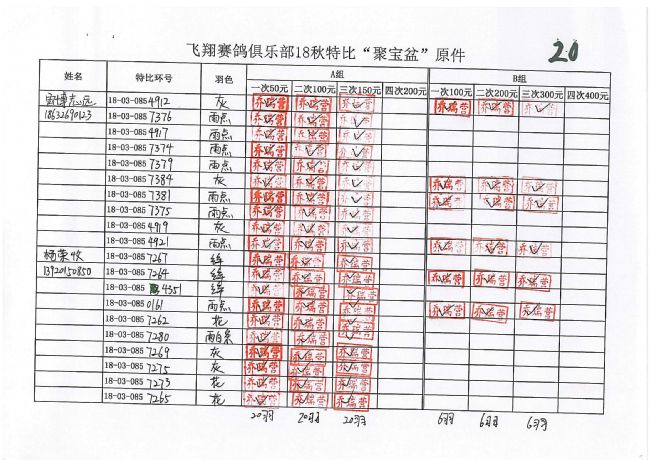 飞翔赛鸽俱乐部18秋特比“聚宝盆”原件 20
姓名 特比环号 羽色 A组 B组
一次50元 二次100元 三次150元 四次200元 一次100元 二次200元 三次300元 四次400元
18-03-0854912 灰 乔瑞营 乔瑞营 乔瑞营 乔瑞营 乔瑞营 乔瑞营
18632690123 18-03-0857376 雨点 乔瑞营 乔瑞营 乔瑞营
18-03-0854917 雨点 乔瑞营 乔瑞营 乔瑞营
18-03-0857374 雨点 乔瑞营 乔瑞营 乔瑞营
18-03-0857379 雨点 乔瑞营 乔瑞营 乔瑞营
18-03-0857384 灰 乔瑞营 乔瑞营 乔瑞营 乔瑞营 乔瑞营 乔瑞营
18-03-0857381 雨点 乔瑞营 乔瑞营 乔瑞营 乔瑞营 乔瑞营 乔瑞营
18-03-0857375 雨点 乔瑞营 乔瑞营 乔瑞营
18-03-0854919 灰 乔瑞营 乔瑞营 乔瑞营
18-03-0854921 雨点 乔瑞营 乔瑞营 乔瑞营 乔瑞营 乔瑞营 乔瑞营
杨荣收 18-03-0857267 绛 乔瑞营 乔瑞营 乔瑞营
13920150850 18-03-0857264 绛 乔瑞营 乔瑞营 乔瑞营 乔瑞营 乔瑞营 乔瑞营
18-03-085 4351 绛 乔瑞营 乔瑞营 乔瑞营
18-03-0850161 雨点 乔瑞营 乔瑞营 乔瑞营 乔瑞营 乔瑞营 乔瑞营
18-03-0857262 花 乔瑞营 乔瑞营 乔瑞营
18-03-0857280 雨白条 乔瑞营 乔瑞营 乔瑞营
18-03-0857269 灰 乔瑞营 乔瑞营 乔瑞营
18-03-0857275 灰 乔瑞营 乔瑞营 乔瑞营
18-03-0857273 花 乔瑞营 乔瑞营 乔瑞营
18-03-0857265 花 乔瑞营 乔瑞营 乔瑞营
20羽 20羽 20羽 6羽 6羽 6羽